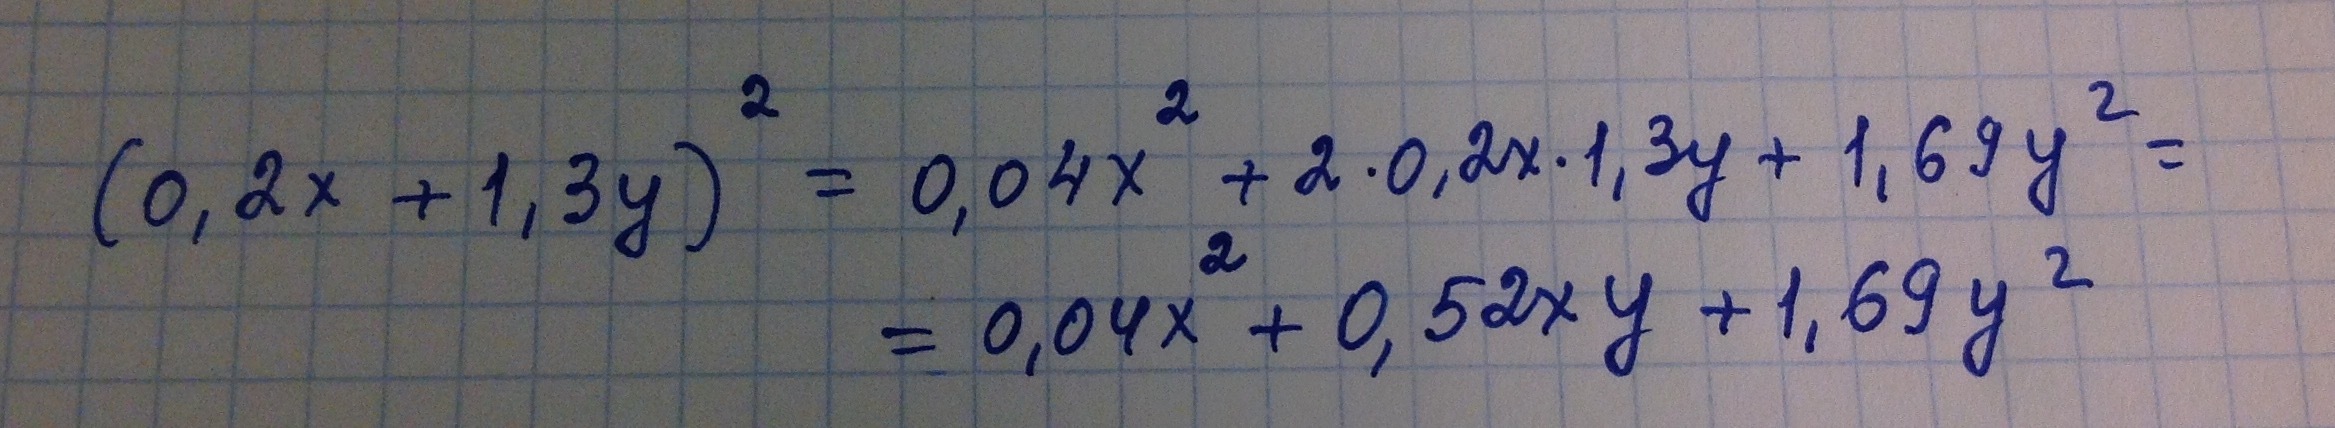 (0,2x + 1,3y)² = 0,04x² + 2·0,2x·1,3y + 1,69y² =
= 0,04x² + 0,52xy + 1,69y²